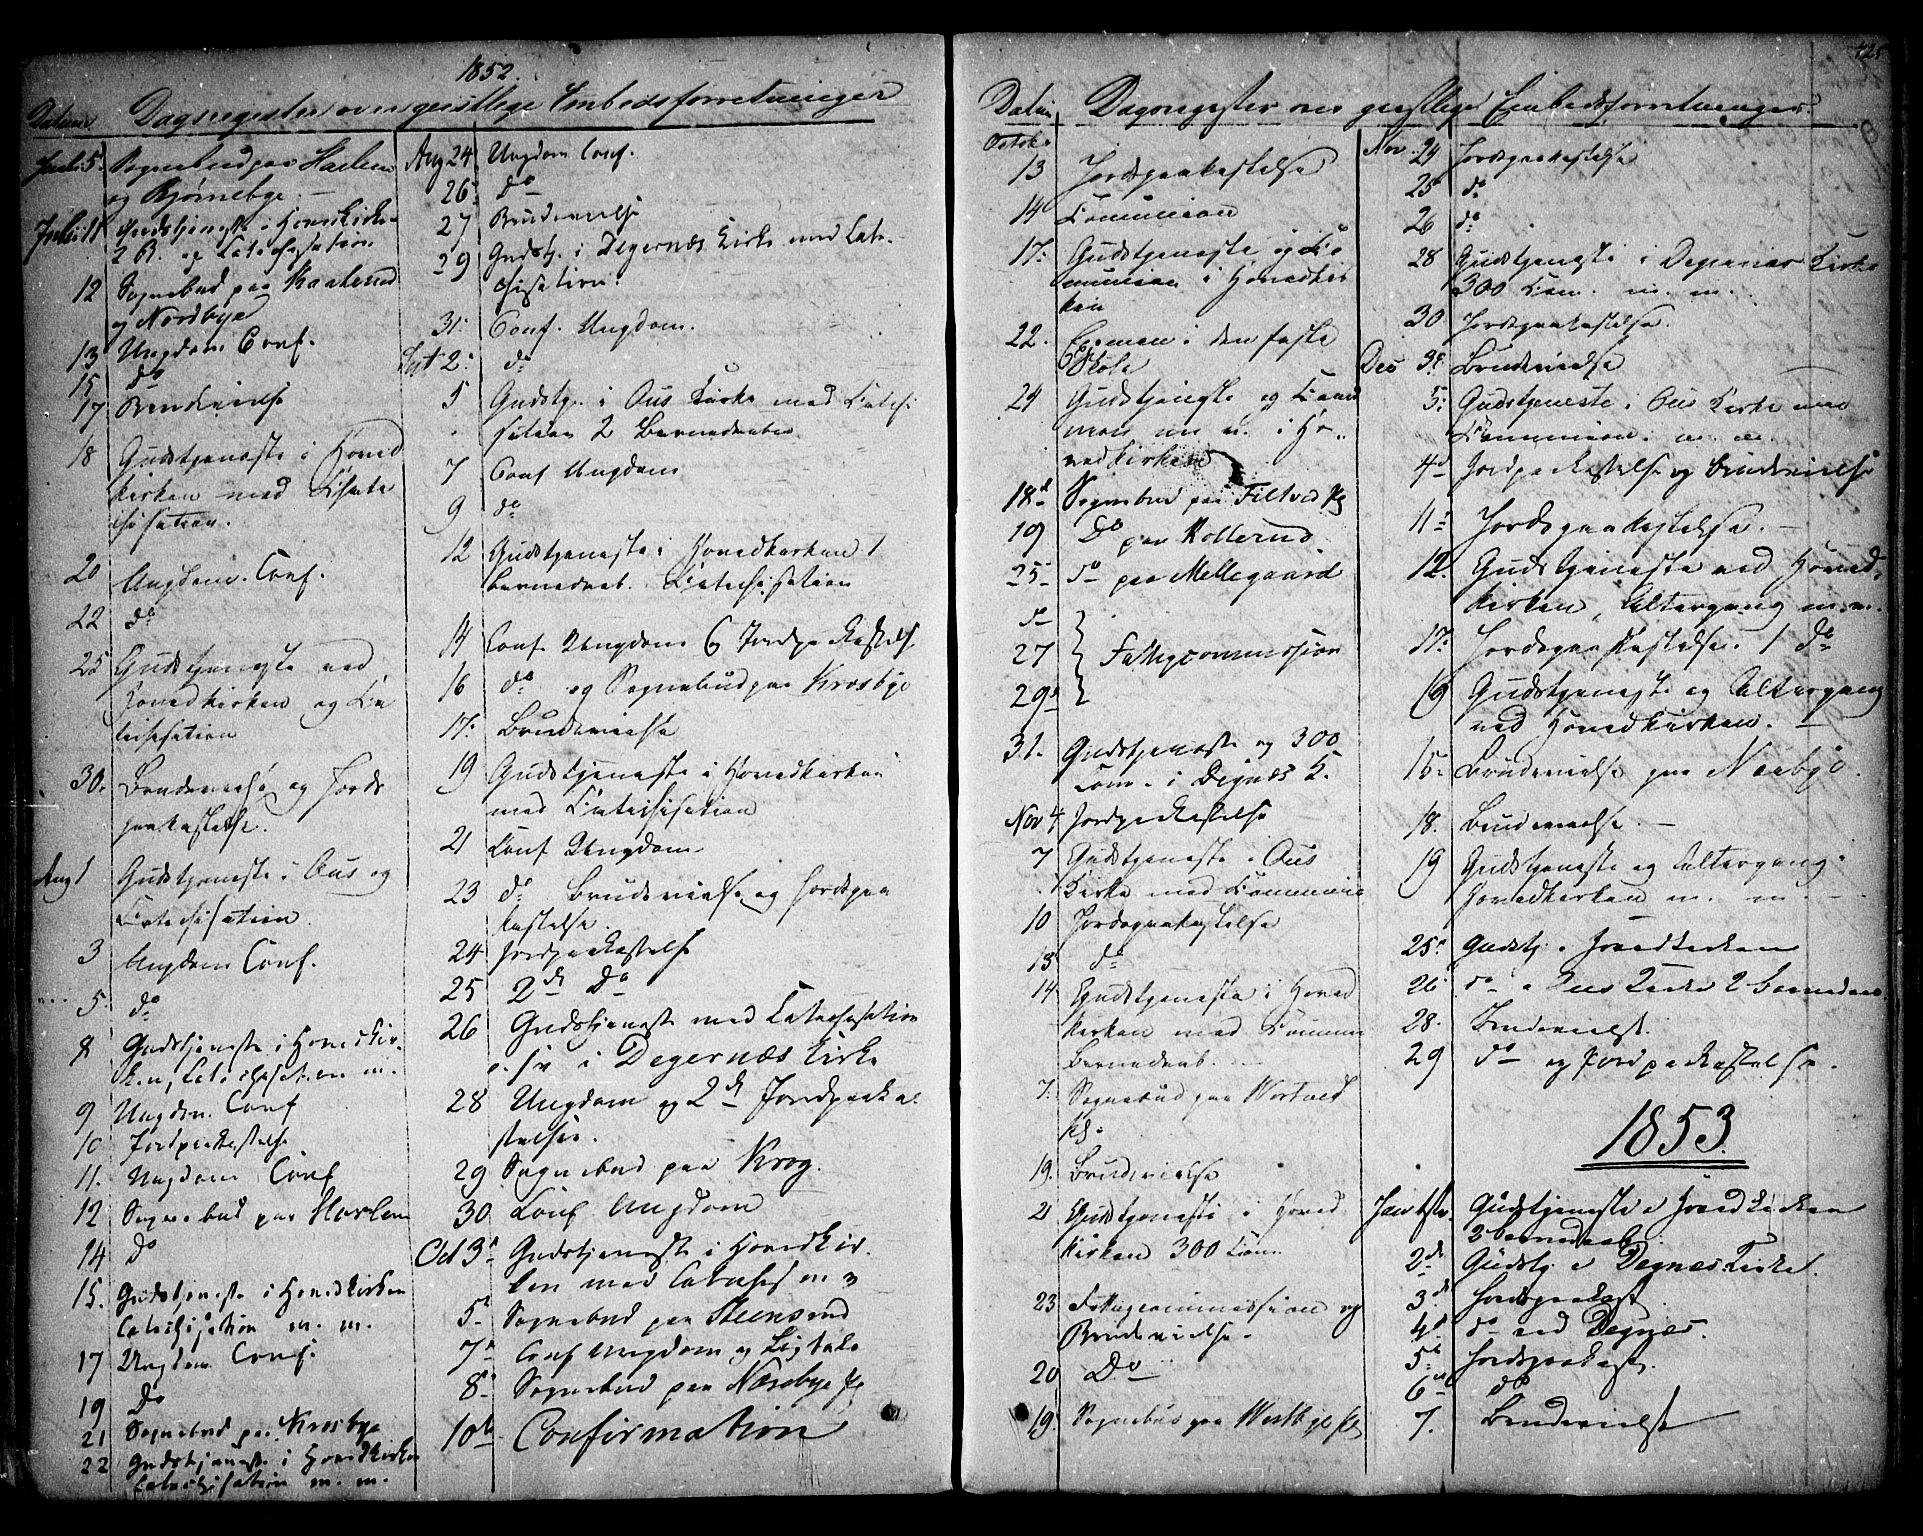 1852.
Datum Dagsregister over geistlige Embedsforretninger
Juli 5. Sognebud paa Haslem
og Bjørnebye. —
Juli 11 Gudstjeneste i Hovedkirke
2 B. og Catechisation
12 Sognebud paa
og Nordbye
13 Ungdom Conf.
15. do
17 Brudevielse
18 Gudstjeneste i Hoved
kirken med Cate
chisation.
20 Ungdom. Conf.
22 do
25 Gudstjeneste ved
Hovedkirken og Ca
techisation
30. Brudevielse og Jords
paakastelse.
Aug 1 Gudstjeneste i Aus og
Catechisation.
3 Ungdom Conf.
5. do
8 Gudstjeneste i Hovedkir-
ken, Catechisation m.
9 Ungdom. Conf
10 Jordpaakastelse
11. Ungdom Conf
12 Sognebud paa Haslem
14 do
15. Gudstjeneste i Hovedkirken
Catechisation m. m.
17 Ungdom Conf.
19 do
21 Sognebud paa Krosbye
22 Gudstjeneste i Hovedkirken
Catechisation m. m.
Aug 24 Ungdom Conf.
26. do
27 Brudevielse
29 Gudstj. i Degernæs Kirke med Cate-
chisation.
31. Conf. Ungdom.
Sept 2. do
5 Gudstj. i Aus Kirke med Catechi
sation 2 Barnedaaber
7 Conf Ungdom
9 do
12 Gudstjeneste i Hovedkirken 1
barnedaab. Catechisation
14 Conf. Ungdom 6 Jordpaakastelse
16 do og Sognebud paa Krosbye
17. Brudevielse
19 Gudstjeneste i Hovedkirken
med Catechisation
21 Conf Ungdom.
23 do Brudevielse og Jordspaa
kastelse.
24 Jordpaakastelse
25 2de do
26 Gudstjeneste med Catechisation
i Degernæs Kirke
28 Ungdom og 2de Jordpaaka
stelser.
29 Sognebud paa Krog.
30 Conf Ungdom
Oct 3. Gudstjeneste i Hovedkir-
ken med Catechis m m
5. Sognebud paa Steensrud
7. Conf Ungdom og Ligtale
8. Sognebud paa Næsebye
10de Confirmation
Datum Dagsregister over geistlige Embedsforretninger.
October
13 Jordspaakastelse
14 Communion
17. Gudstjeneste og Co
munion i Hovedkir
ken
22. Examen i den faste
Skole
24 Gudstjeneste og Com
mun m m. i Ho„
vedkirken
18d Sognebud paa Filtved
19 do paa Kollerud
25 do paa Mellegaard
do
27 } Fattigcommission
29.
31. Gudstjeneste og 300
Com. i Degnæs K.
Nov 4 Jordpaakastelse
7 Gudstjeneste i Aus
Kirke med Communion
10 Jordspaakastelse
13 do
14 Gudstjeneste i Hoved
kirken med Commun
Barnedaab.
7. Sognebud paa
19. Brudevielse
21 Gudstjeneste i Hoved
kirken 300 Com
23 Fattigcommission og
Brudevielse.
20 Do
19. Sognebud paa Westbye
Nov. 24 Jordspaakastelse
25 do
26 do
28 Gudstjeneste i Degernæs Kirke
300 Com. m. m.
30 Jordspaakastelse.
Dec 3. Brudevielse
5. Gudstjeneste i Aus Kirke med
Communion. m. m.
4 Jordpaakastelse og Brudevielse
11. Jordspaakastelse. —
12. Gudstjeneste ved Hoved-
kirken, Altergang m. m.
17. Jordspaakastelse. 1 do
19 Gudstjeneste og Altergang
ved Hovedkirken. —
15 Brudevielse paa Næsbye.
18. Brudevielse. —
19 Gudstjeneste og Altergang.
Hovedkirken m. m. —
25. Gudstj. i Hovedkirken
26 do i Aus Kirke 2 barnedaab
28. Brudevielse.
29 do og Jordpaakastelse.
1853.
Jan 1ste. Gudstjeneste i Hovedkirken
2 barnedaab.
2de Gudstj i Degnæs Kirke.
3de Jordspaakast.
4de do ved Degnæs.
5. Jordspaakast.
6te do
7. Brudevielse